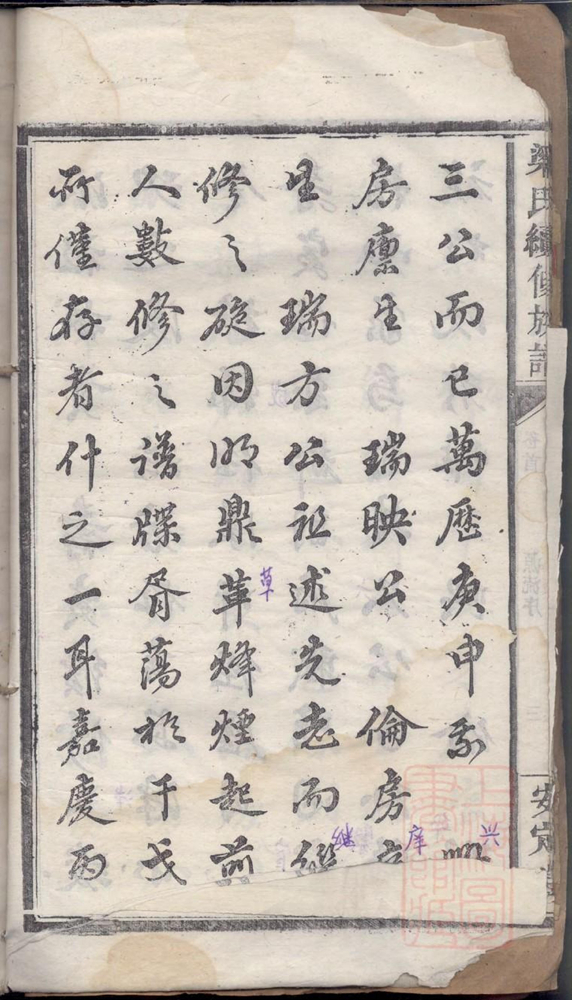 梁氏續修族譜
卷首
源流序
三
安定
三公而已萬歷庚申我
兴
房廩生 瑞映公 倫房
庠
生 瑞方公祖述先志而繼
继
修之旋因明鼎革烽煙起前
草
人數修之譜牒胥蕩於干戈
所僅存者什之一耳嘉慶丙